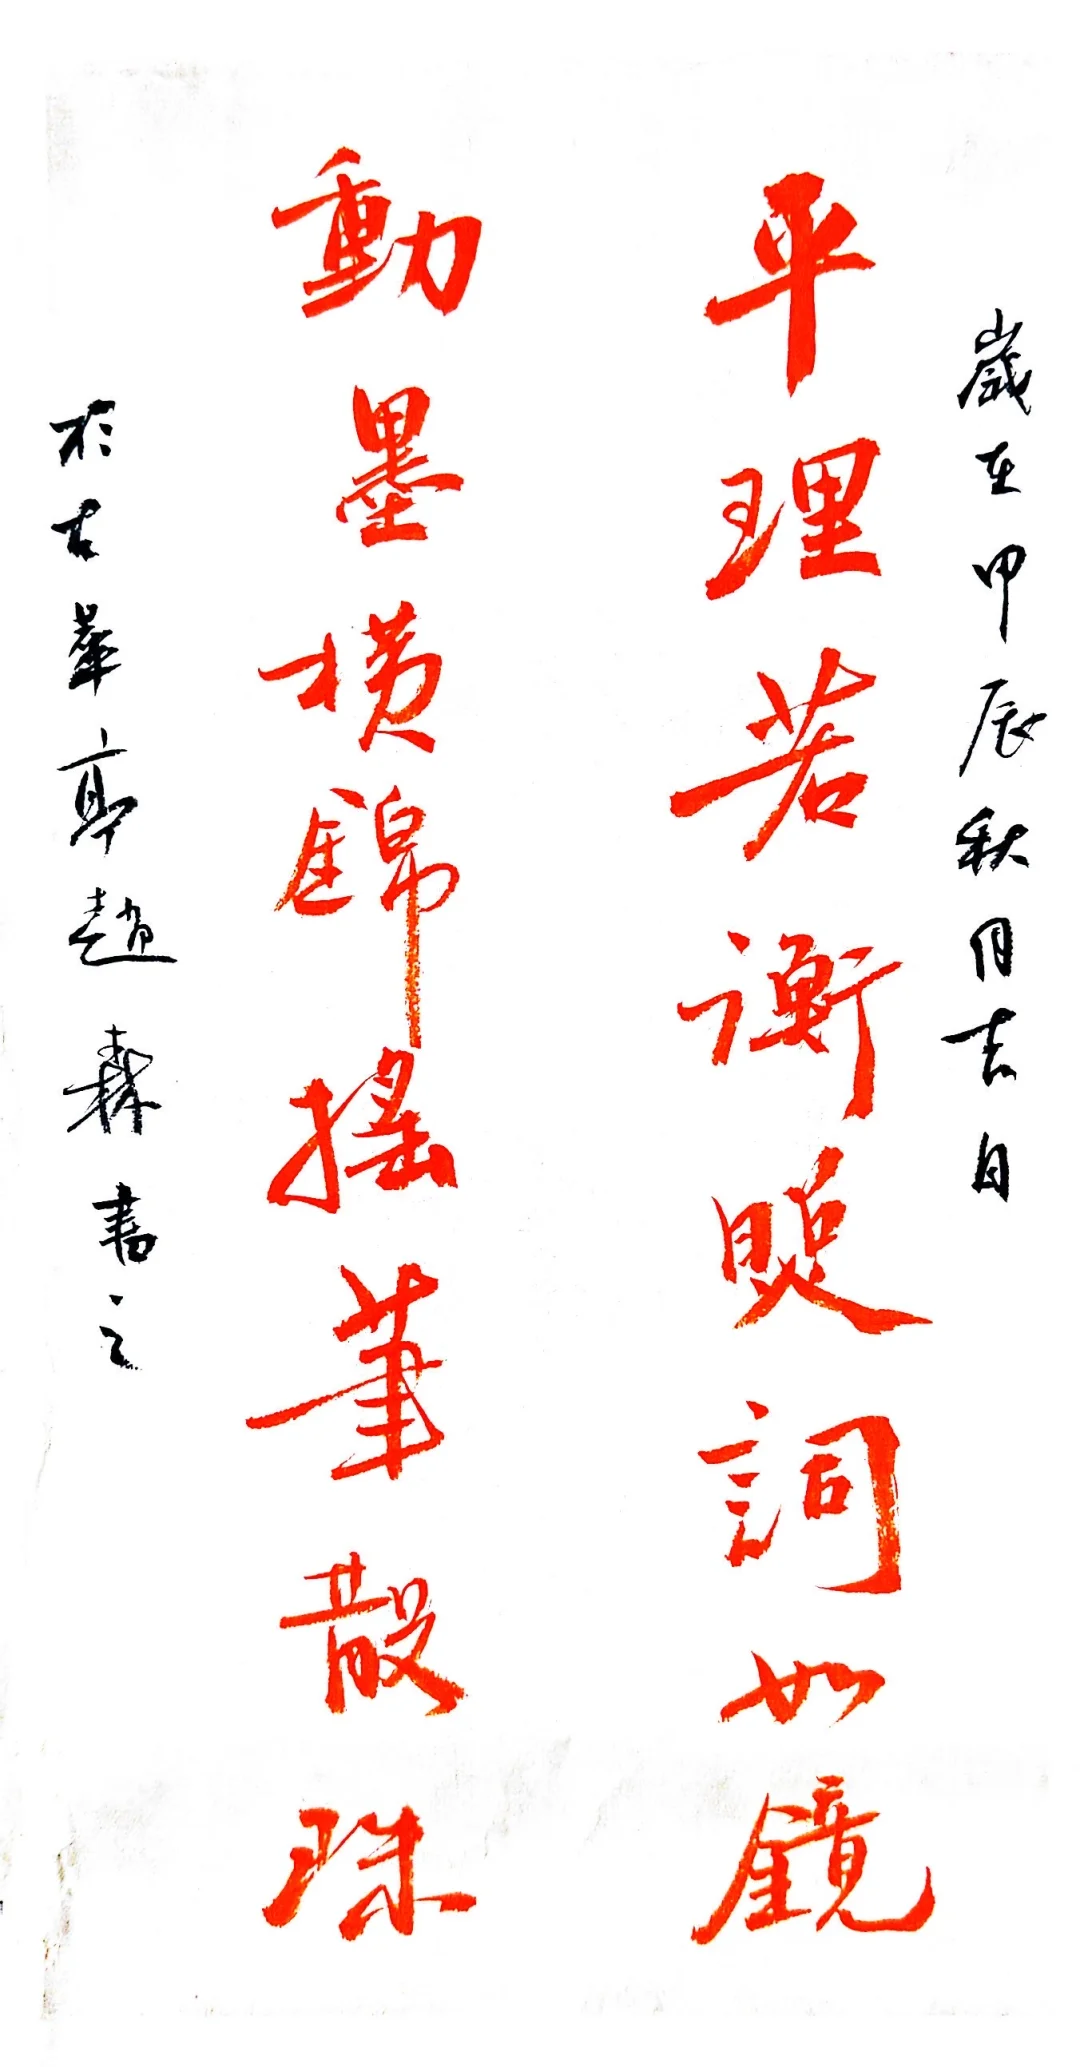 歲在甲辰秋月吉日
平理若衡照詞如鏡
動墨橫錦搖筆散珠
於古華亭趙森書之